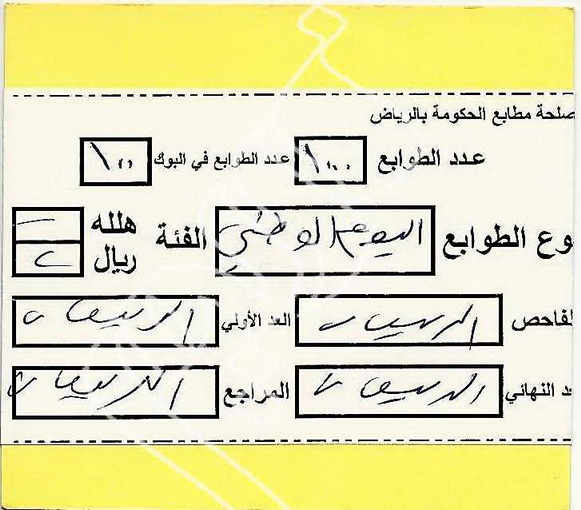 صلحة مطابع الحكومة بالرياض
عدد الطوابع ١٠٠٠ عدد الطوابع في البوك ١٠٠
وع الطوابع اليوم الوطني الفئة هلله — ريال ٢
لفاحص العد الأولي
د النهائي المراجع